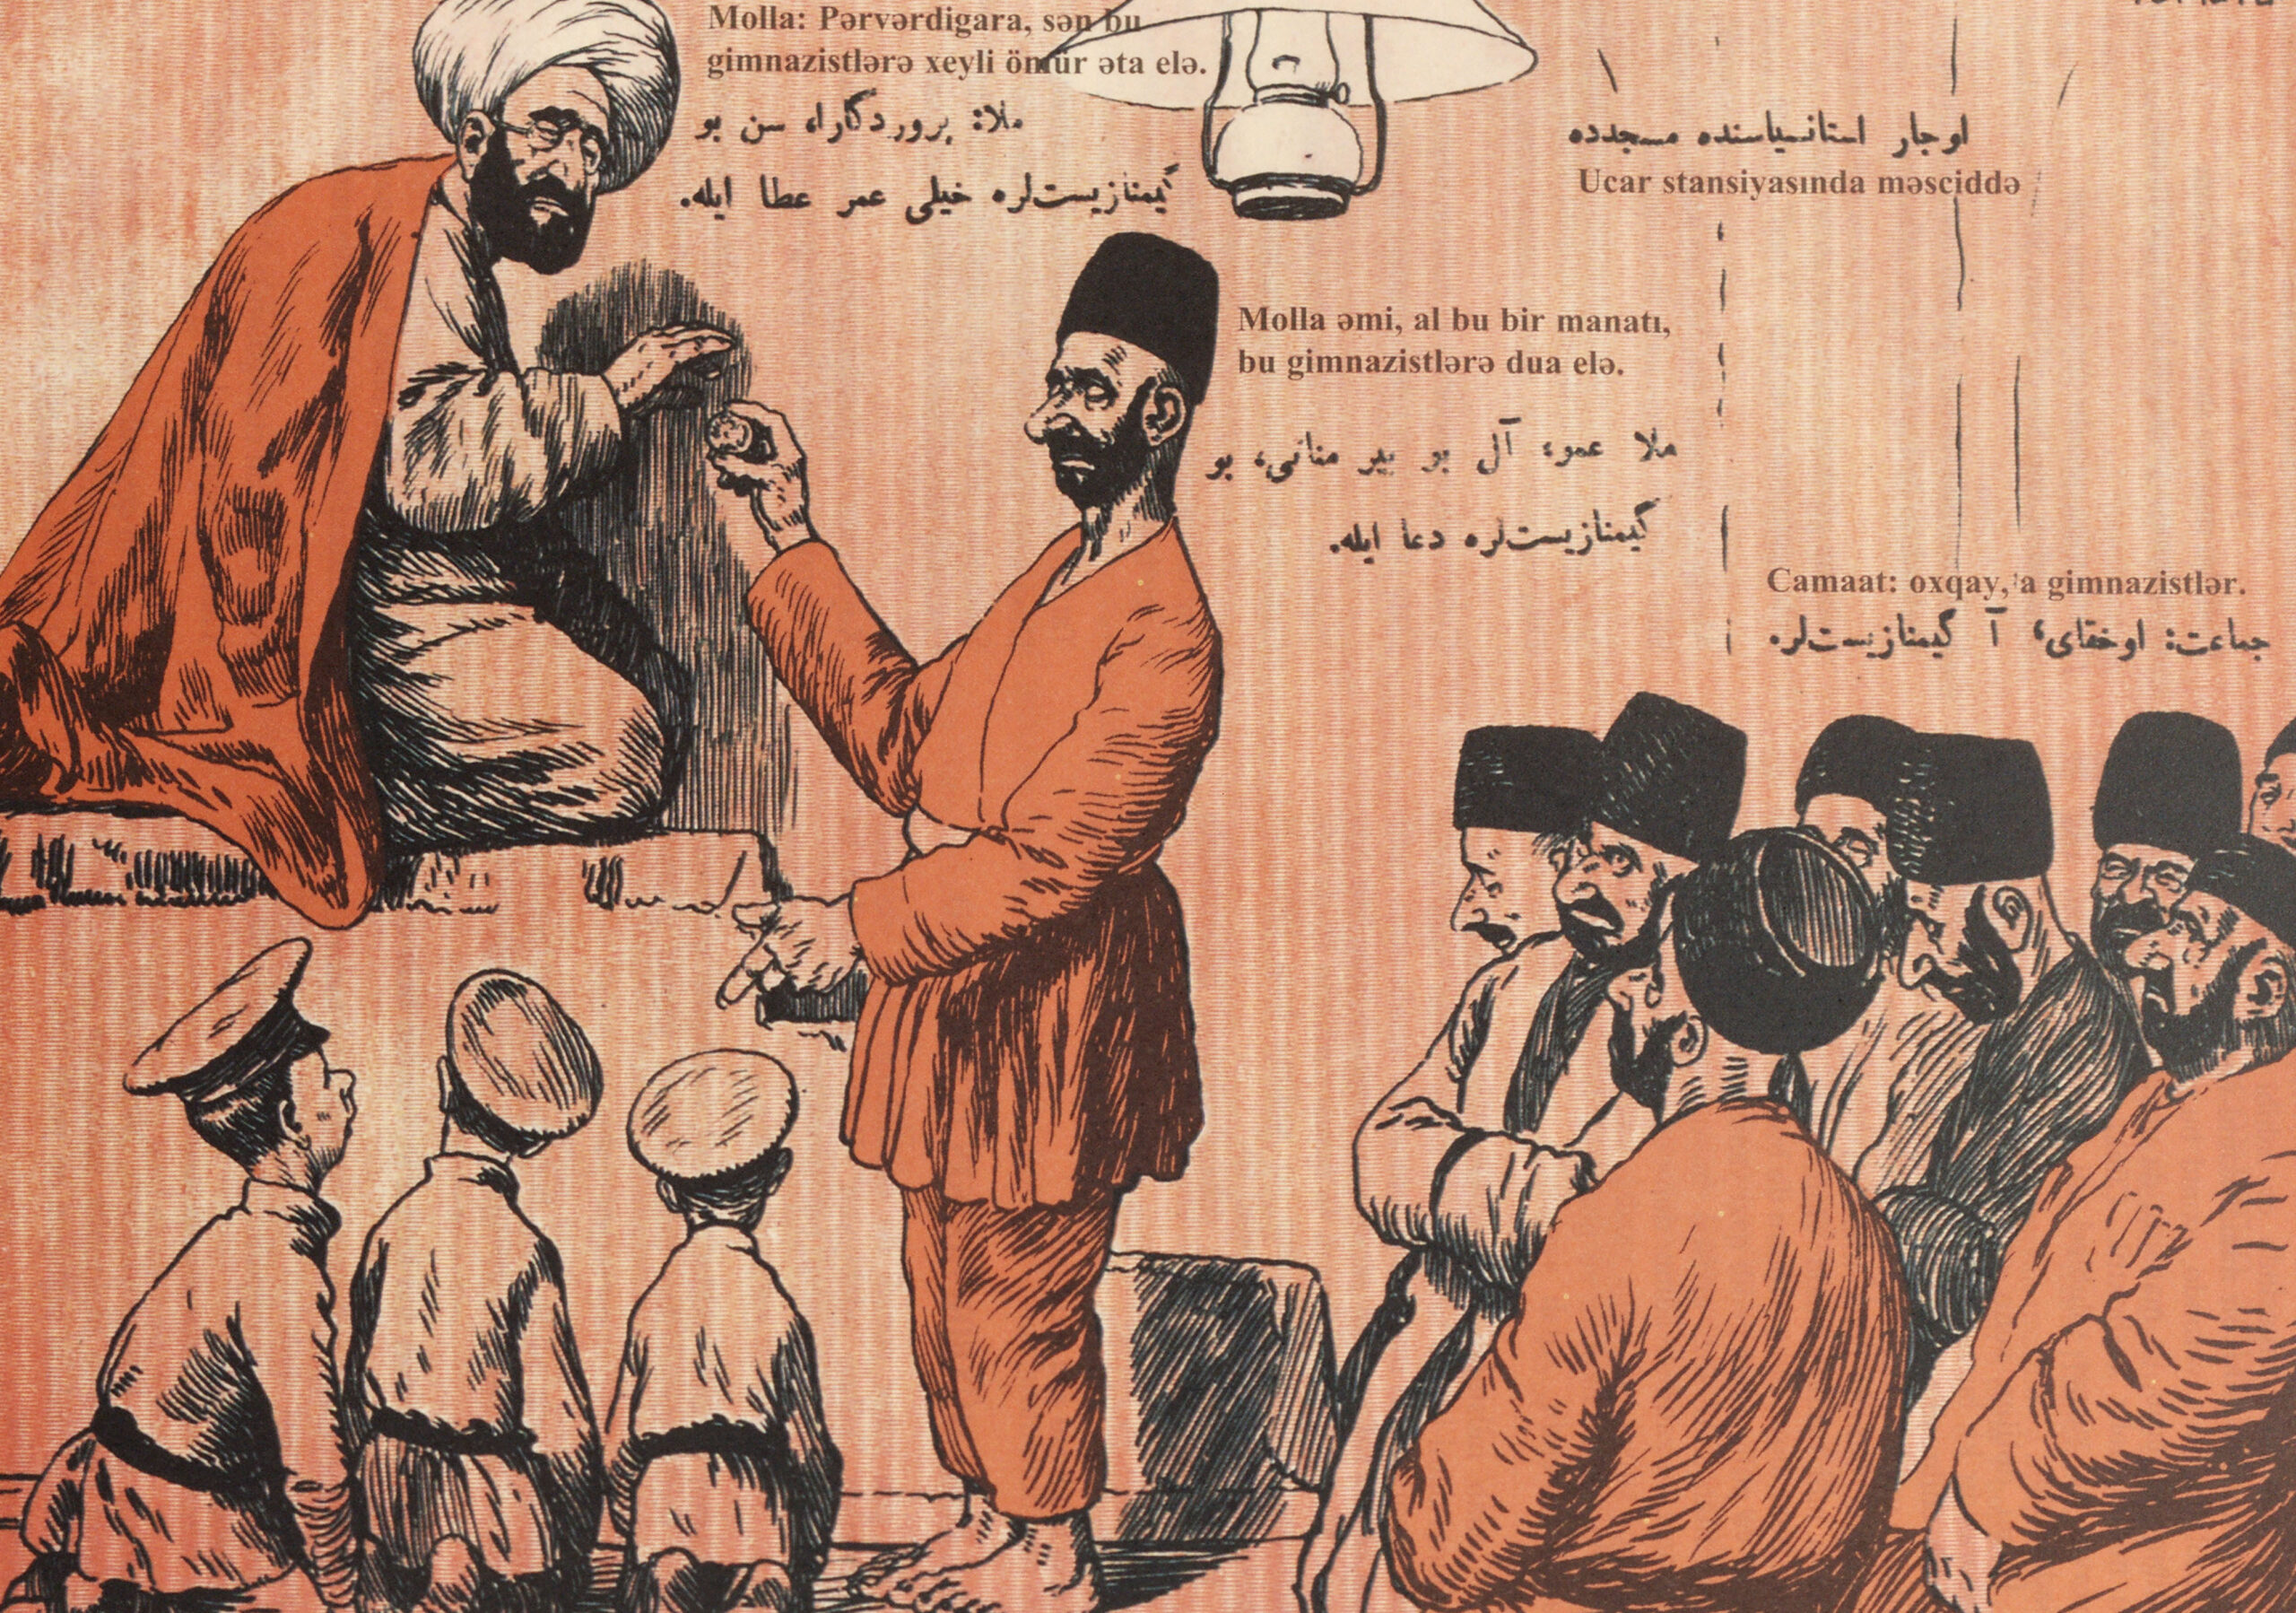 Molla: Pərvərdigara, sən bu
gimnazistlərə xeyli ömür əta elə.
ملا: پروردگارا، سن بو
گیمنازیست‌لره خیلی عمر عطا ایله.
اوجار استانسیاسنده مسجدده
Ucar stansiyasında məsciddə
Molla əmi, al bu bir manatı,
bu gimnazistlərə dua elə.
ملا عمو، آل بو بیر مناتی، بو
گیمنازیست‌لره دعا ایله.
Camaat: oxqay, a gimnazistlər.
جماعت: اوخقای، آ گیمنازیست‌لره